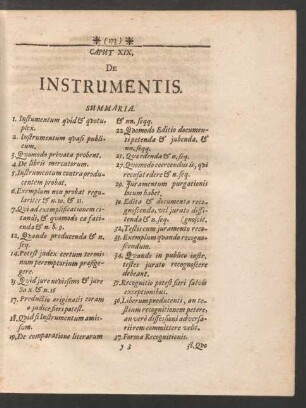 ❋ (173) ❋
CAPUT XIX.
DE
INSTRUMENTIS.
SUMMARIA.
1. Instumentum qvid & qvotuplex.
2. Instrumentum qvasi publicum.
3. Qvomodo privata probent.
4. De libris mercatorum.
5. Instrumentum contra producentem probat.
6. Exemplum non probat regulariter & n. 10. & 11.
7. Qvid ad exemplificationem citandi, & qvomodo ea facienda & n. 8. 9.
12. Qvando producenda & n. seq.
14. Potest judex certum terminum peremptorium præfigere.
15. Qvid jure novissimo & jure
17. Productio originalis coram judice fieri potest.
18. Qvid si Instrumentum amissum.
19. De comparatione literarum
& nn. seqq.
22. Qvomodo Editio documenti petenda & jubenda, & nn. seqq.
25. Qvæ edenda & n. seq.
27. Qvomodo coercendus is, qvi recusat edere & n. seq.
29. Juramentum purgationis locum habet.
30. Edita & documenta recognoscenda, vel jurato diffitenda & n. seq.
32. Testis cum juramento reco-
33. Exemplum qvando recognoscendum.
34. Qvando in publico instr. testes jurato recognoscere debeant.
35. Recognitio potest fieri salvis exceptionibus.
36. Liberum producenti, an testium recognitionem petere, an vero diffessioni adversarii rem committere velit.
37. Forma Recognitionis.
y 3
38. Qvo